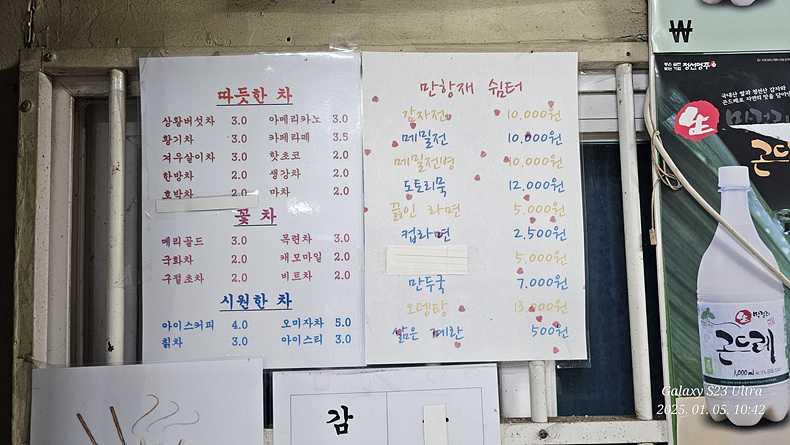 따듯한 차
상황버섯차 3.0 아메리카노 3.0
황기차 3.0 카페라떼 3.5
겨우살이차 3.0 핫초코 2.0
한방차 2.0 생강차 2.0
호박차 2.0 마차 2.0
꽃 차
메리골드 3.0 목련차 3.0
국화차 2.0 캐모마일 2.0
구절초차 2.0 비트차 2.0
시원한 차
아이스커피 4.0 오미자차 5.0
칡차 3.0 아이스티 3.0
만항재 쉼터
감자전 10.000원
메밀전 10.000원
메밀전병 10.000원
도토리묵 12.000원
끓인 라면 5.000원
컵라면 2.500원
5.000원
만두국 7.000원
오뎅탕 13.000원
삶은 계란 500원
감
₩
정선명주
국내산 쌀과 정선산 감자와
生
곤드레
1,000㎖
Galaxy S23 Ultra
2025. 01. 05. 10:42